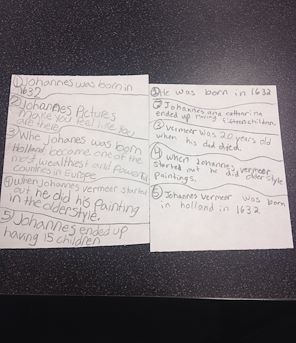 ① Johannes was born in
1632
② Johannes Pictures
make you feel like you
are there
③ Whe Johanes was born
Holland become one of the
most, wealthest and powerful
countries in Europe
④ when Johannes vermeer started
out he did his painting
in the older style.
⑤ Johannes ended up
having 15 children
① He was born in 1632
② Johannes and catharina
ended up having fifteen children.
③ vermeer was 20 years old
when his dad died.
④ when Johannes vermeer
started out he did older style
paintings.
⑤ Johannes vermeer was born
in holland in 1632